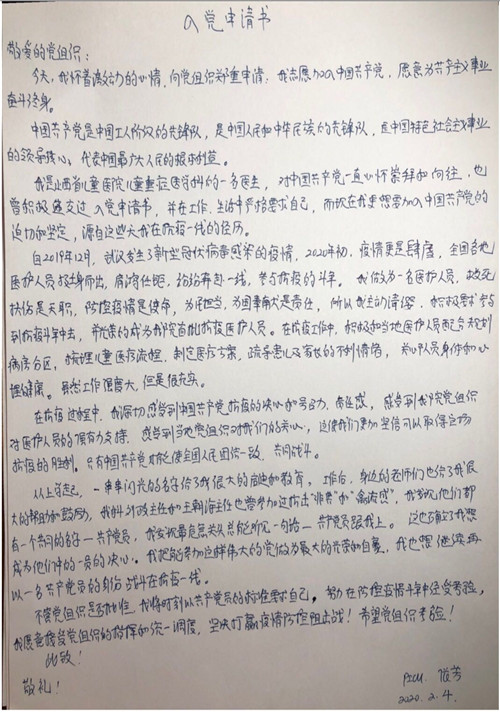 入党申请书
敬爱的党组织：
今天，我怀着激动的心情，向党组织郑重申请：我志愿加入中国共产党，愿意为共产主义事业
奋斗终身。
中国共产党是中国工人阶级的先锋队，是中国人民和中华民族的先锋队，是中国特色社会主义事业
的领导核心，代表中国最广大人民的根本利益。
我是山西省儿童医院儿童重症医学科的一名医生，对中国共产党一直心怀崇拜和向往，也
曾积极递交过入党申请书，并在工作、生活中严格要求自己，而现在我更想要加入中国共产党的
迫切和坚定，源自这些天我在抗疫一线的经历。
自2019年12月，武汉发生了新型冠状病毒感染的疫情，2020年初，疫情更是肆虐，全国各地
医护人员挺身而出，肩负任务，纷纷奔赴一线，参与抗疫的斗争。我做为一名医护人员，救死
扶伤是天职，防控疫情是使命，为民担当，为国奉献是责任，所以我主动请缨，积极要求参与
到抗疫斗争中去，并光荣的成为我院首批抗疫医护人员。在抗疫工作中，积极和当地医护人员配合规划
病房分区，梳理儿童医疗流程，制定医疗方案，疏导患儿及家长的不利情绪，关心人员身体和心
理健康。虽然工作强度大，但是很充实。
在抗疫过程中，我深切感受到中国共产党抗疫的决心和号召力，责任感，感受到我院党组织
对医护人员的很有力支持，感受到当地党组织对我们的关心，这使我们更加坚信可以取得这场
抗疫的胜利。只有中国共产党才能使全国人民团结一致，共同战斗。
从上学起，一串串闪光的名字给了我很大的启迪和教育。工作后，身边的老师们也给了我很
大的帮助和鼓励，我科主任和主任也曾参加过抗击“非典”和“禽流感”，我发现他们都
有一个共同的名字—共产党员，我发现最危急关头总能听见一句话—共产党员跟我上。这也坚定了我想
成为他们中的一员的决心。我把能参加这样伟大的党做为最大的光荣和自豪，我也想继续再
以一名共产党员的身份战斗在抗疫一线。
不管党组织是否批准，我将时刻以共产党员的标准要求自己，努力在防控疫情斗争中经受考验，
我愿意接受党组织的指挥和统一调度，坚决打赢疫情防控阻击战！希望党组织考验！
此致！
敬礼！
PICU 张芳
2020.2.4.